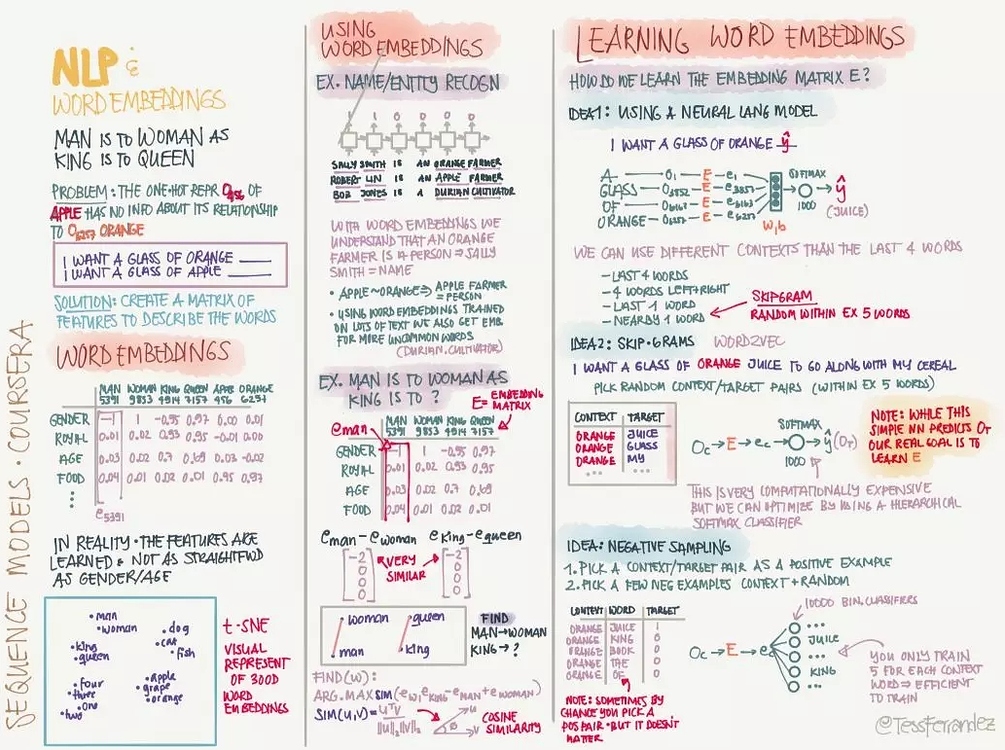 SEQUENCE MODELS · COURSERA
NLP &
WORD EMBEDDINGS
MAN IS TO WOMAN AS
KING IS TO QUEEN
PROBLEM: THE ONE-HOT REPR O456 OF
APPLE HAS NO INFO ABOUT ITS RELATIONSHIP
TO O6257 ORANGE
I WANT A GLASS OF ORANGE ____
I WANT A GLASS OF APPLE ____
SOLUTION: CREATE A MATRIX OF
FEATURES TO DESCRIBE THE WORDS
WORD EMBEDDINGS
MAN WOMAN KING QUEEN APPLE ORANGE
5391 9853 4914 7157 456 6257
GENDER -1 1 -0.95 0.97 0.00 0.01
ROYAL 0.01 0.02 0.93 0.95 -0.01 0.00
AGE 0.03 0.02 0.7 0.69 0.03 -0.02
FOOD 0.04 0.01 0.02 0.01 0.95 0.97
e5391
IN REALITY · THE FEATURES ARE
LEARNED & NOT AS STRAIGHTFWD
AS GENDER/AGE
man
woman
king
queen
dog
cat
fish
four
three
one
two
apple
grape
orange
t-SNE
VISUAL
REPRESENT
OF 300D
WORD
EMBEDDINGS
USING
WORD EMBEDDINGS
EX. NAME/ENTITY RECOGN
1 1 0 0 0 0
SALLY SMITH IS AN ORANGE FARMER
ROBERT LIN IS AN APPLE FARMER
BOB JONES IS A DURIAN CULTIVATOR
WITH WORD EMBEDDINGS WE
UNDERSTAND THAT AN ORANGE
FARMER IS A PERSON ⇒ SALLY
SMITH = NAME
• APPLE ~ ORANGE ⇒ APPLE FARMER
= PERSON
• USING WORD EMBEDDINGS TRAINED
ON LOTS OF TEXT WE ALSO GET EMB.
FOR MORE UNCOMMON WORDS
(DURIAN, CULTIVATOR)
EX. MAN IS TO WOMAN AS
KING IS TO ?
E = EMBEDDING
MATRIX
eman
MAN WOMAN KING QUEEN
5391 9853 4914 7157
GENDER -1 1 -0.95 0.97
ROYAL 0.01 0.02 0.93 0.95
AGE 0.03 0.02 0.7 0.69
FOOD 0.04 0.01 0.02 0.01
eman - ewoman eking - equeen
-2 -2
0 0
0 0
0 0
VERY
SIMILAR
woman
queen
man
king
FIND
MAN → WOMAN
KING → ?
FIND(W):
ARG.MAX SIM(eW, eKING - eMAN + eWOMAN)
SIM(U,V) = UᵀV / ||U||₂||V||₂
U
V
COSINE
SIMILARITY
LEARNING WORD EMBEDDINGS
HOW DO WE LEARN THE EMBEDDING MATRIX E?
IDEA1: USING A NEURAL LANG MODEL
I WANT A GLASS OF ORANGE ŷ
A — O1 — E — e1
GLASS — O3852 — E — e3852
OF — O6163 — E — e6163
ORANGE — O6257 — E — e6257
W,b
SOFTMAX
1000
ŷ
(JUICE)
WE CAN USE DIFFERENT CONTEXTS THAN THE LAST 4 WORDS
- LAST 4 WORDS
- 4 WORDS LEFT+RIGHT
- LAST 1 WORD
- NEARBY 1 WORD
SKIPGRAM
RANDOM WITHIN EX 5 WORDS
IDEA2: SKIP-GRAMS WORD2VEC
I WANT A GLASS OF ORANGE JUICE TO GO ALONG WITH MY CEREAL
PICK RANDOM CONTEXT/TARGET PAIRS (WITHIN EX 5 WORDS)
CONTEXT TARGET
ORANGE JUICE
ORANGE GLASS
ORANGE MY
...
Oc → E → ec → ŷ (OT)
SOFTMAX
1000
NOTE: WHILE THIS
SIMPLE NN PREDICTS OT
OUR REAL GOAL IS TO
LEARN E
THIS IS VERY COMPUTATIONALLY EXPENSIVE
BUT WE CAN OPTIMIZE BY USING A HIERARCHICAL
SOFTMAX CLASSIFIER
IDEA: NEGATIVE SAMPLING
1. PICK A CONTEXT/TARGET PAIR AS A POSITIVE EXAMPLE
2. PICK A FEW NEG EXAMPLES CONTEXT + RANDOM
CONTEXT WORD TARGET
ORANGE JUICE 1
ORANGE KING 0
ORANGE BOOK 0
ORANGE THE 0
ORANGE OF 0
NOTE: SOMETIMES BY
CHANCE YOU PICK A
POS PAIR · BUT IT DOESN'T
MATTER
Oc → E → ec
10000 BIN. CLASSIFIERS
JUICE
KING
YOU ONLY TRAIN
5 FOR EACH CONTEXT
WORD ⇒ EFFICIENT
TO TRAIN
@TessFerrandez